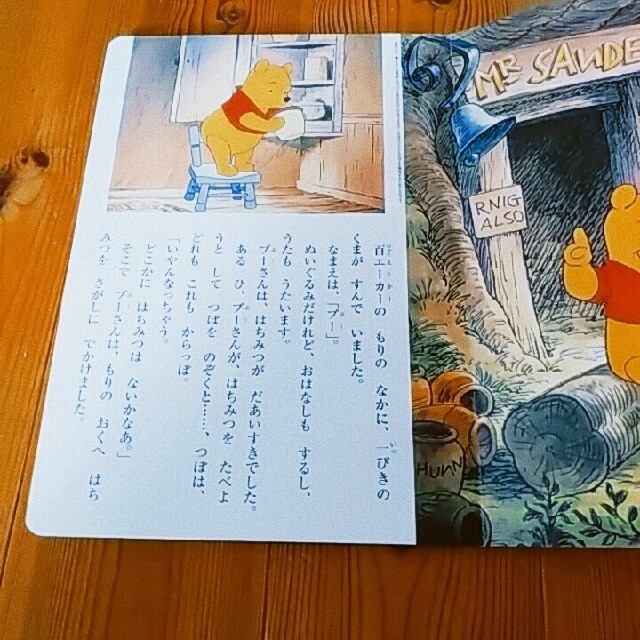 百エーカーの もりの なかに、一ぴきの
くまが すんで いました。
なまえは、「プー」。
ぬいぐるみだけれど、おはなしも するし、
うたも うたいます。
プーさんは、はちみつが だあいすきでした。
ある ひ、プーさんが、はちみつを たべよ
うと して つぼを のぞくと……、つぼは、
どれも これも からっぽ。
「いやんなっちゃう。
どこかに はちみつは ないかなあ。」
そこで プーさんは、もりの おくへ はち
みつを さがしに でかけました。
MR SANDE
RNIG
ALSO
HUNN